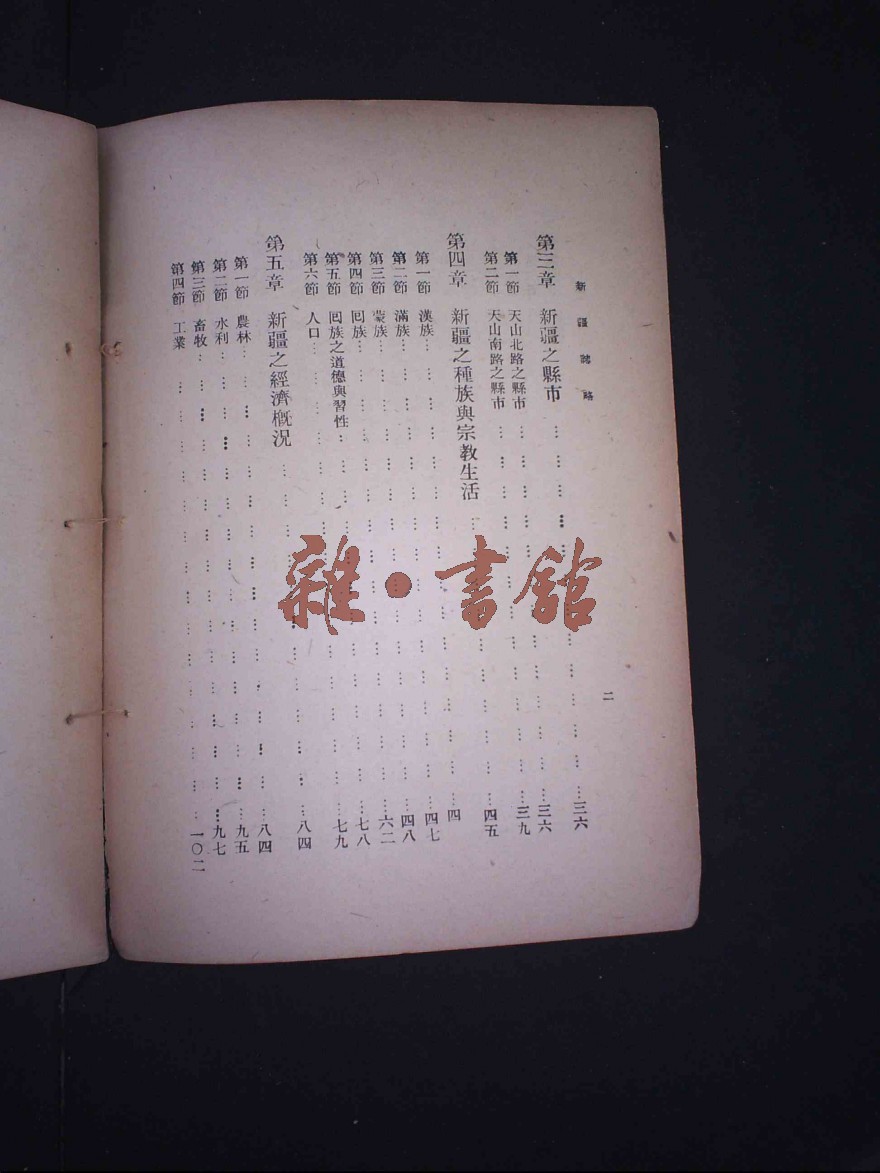 新疆誌略
二
第三章 新疆之縣市………三六
第一節 天山北路之縣市………三六
第二節 天山南路之縣市………三九
第四章 新疆之種族與宗教生活………四五
第一節 漢族………四
第二節 滿族………四七
第三節 蒙族………四八
第四節 回族………六二
第五節 回族之道德與習性………七八
第六節 人口………七九
第五章 新疆之經濟概況………八四
第一節 農林………八四
第二節 水利………九五
第三節 畜牧………九七
第四節 工業………一〇二
雜·書館